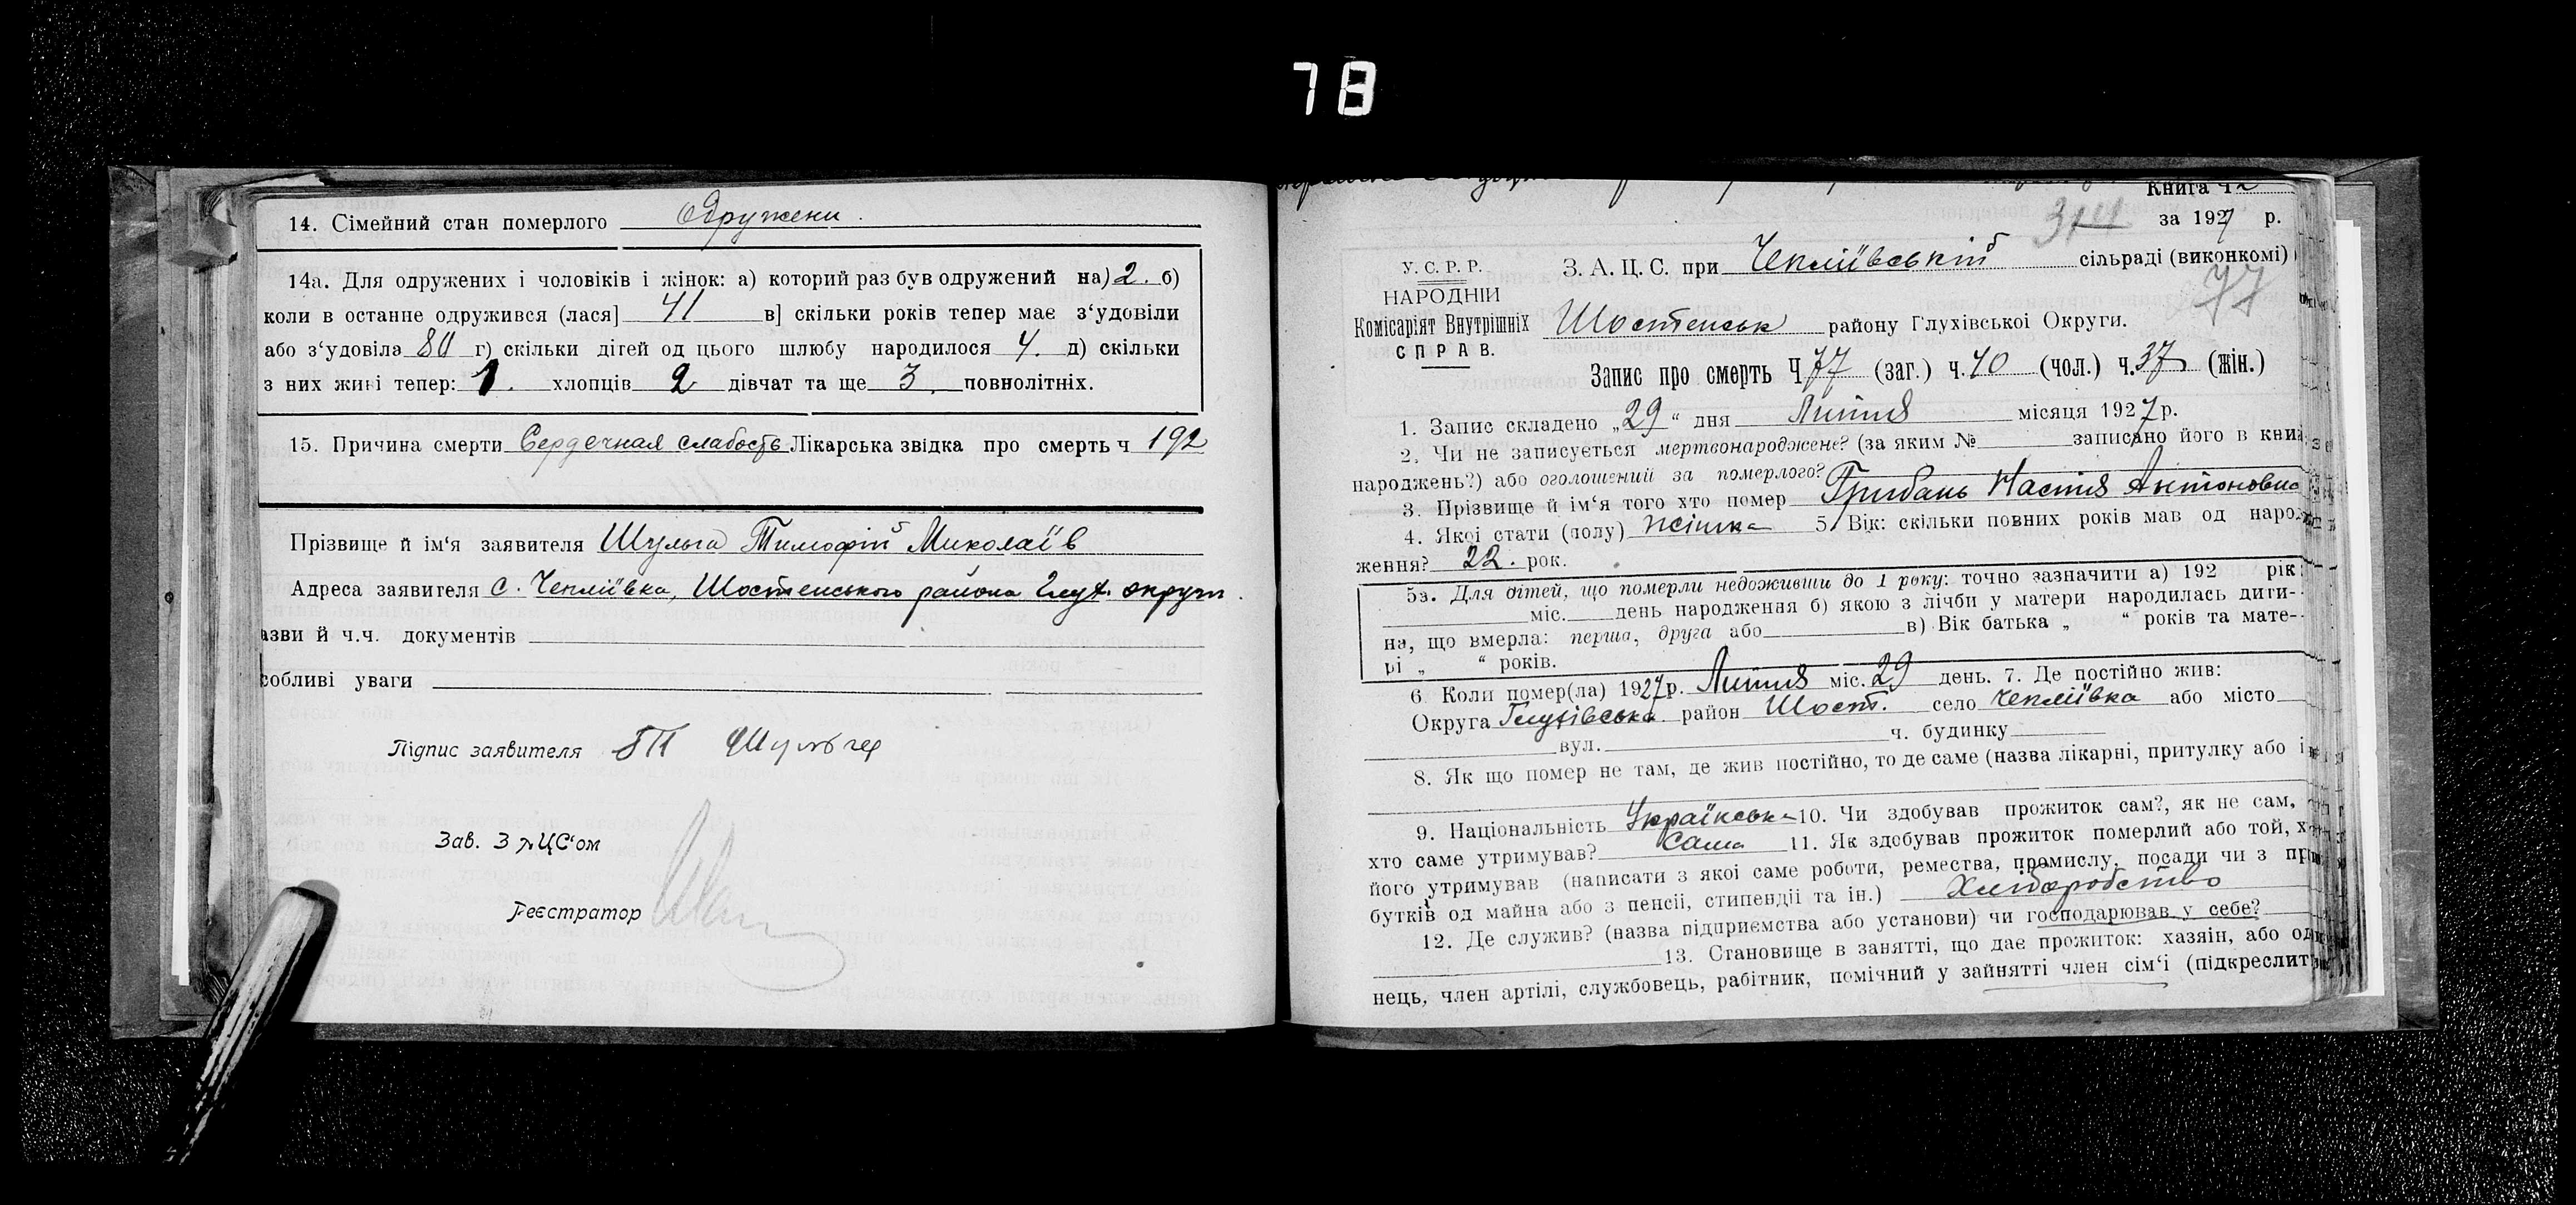 78
14. Сімейний стан померлого Одружени
14а. Для одружених і чоловіків і жінок: а) которий раз був одружений на) 2. б)
коли в останнє одружився (лася] 41 в] скільки років тепер має з‘удовіли
або з‘удовіла 80 г) скільки дітей од цього шлюбу народилося 4. д) скільки
з них живі тепер: 1. хлопців 2 дівчат та ще 3. повнолітніх.
15. Причина смерти Сердечная слабость Лікарська звідка про смерть ч 192
Прізвище й ім‘я заявителя Шульга Тимофій Миколаїв
Адреса заявителя с. Чепліївка, Шостенського района Глух. округи.
азви й ч.ч. документів
собливі уваги
Підпис заявителя Шульга
Зав. ЗАЦС‘ом
Реєстратор
Книга ч 2
за 1927 р.
У. С. Р. Р.
НАРОДНІЙ
Комісаріят Внутрішніх
СПРАВ.
З. А. Ц. С. при Чепліївський сільраді (виконкомі)
77
Шостенськ району Глухівської Округи.
Запис про смерть Ч 77 (заг.) ч. 40 (чол.) ч. 37 (жін.)
1. Запис складено „29“ дня Липня місяця 1927 р.
2. Чи не записується мертвонароджене? (за яким № записано його в книз
народжень?) або оголошений за померлого?
3. Прізвище й ім‘я того хто помер Грибань Настя Антоновна
4. Якої стати (полу) жінка 5. Вік: скільки повних років мав од наро-
ження? 22. рок.
5а. Для дітей, що померли недоживши до 1 року: точно зазначити а) 192 рік
міс. день народження б) якою з лічби у матери народилась дити-
на, що вмерла: перша, друга або в) Вік батька „ “ років та мате-
рі „ “ років.
6. Коли помер(ла) 1927 р. Липня міс. 29 день. 7. Де постійно жив:
Округа Глухівська район Шост. село Чепліївка або місто
вул. ч. будинку
8. Як що помер не там, де жив постійно, то де саме (назва лікарні, притулку або і
9. Національність Українська 10. Чи здобував прожиток сам?, як не сам,
хто саме утримував? Сама 11. Як здобував прожиток померлий або той, х
його утримував (написати з якої саме роботи, ремества, промислу, посади чи з при
бутків од майна або з пенсії, стипендії та ін.) Хліборобство
12. Де служив? (назва підприємства або установи) чи господарював у себе?
13. Становище в занятті, що дає прожиток: хазяїн, або оди
нець, член артілі, службовець, рабітник, помічний у зайнятті член сім‘ї (підкреслит